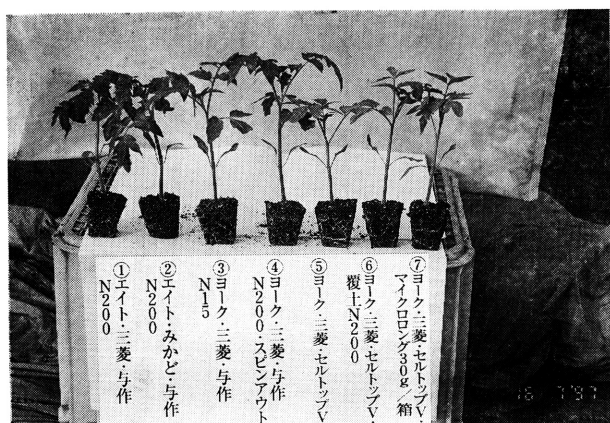 ①エイト・三菱・与作
N200
②エイト・みかど・与作
N200
③ヨーク・三菱・与作
N15
④ヨーク・三菱・与作
N200・スピンアウト
⑤ヨーク・三菱・セルトップV
⑥ヨーク・三菱・セルトップV・
覆土N200
⑦ヨーク・三菱・セルトップV・
マイクロロング30g/箱
16 7'97